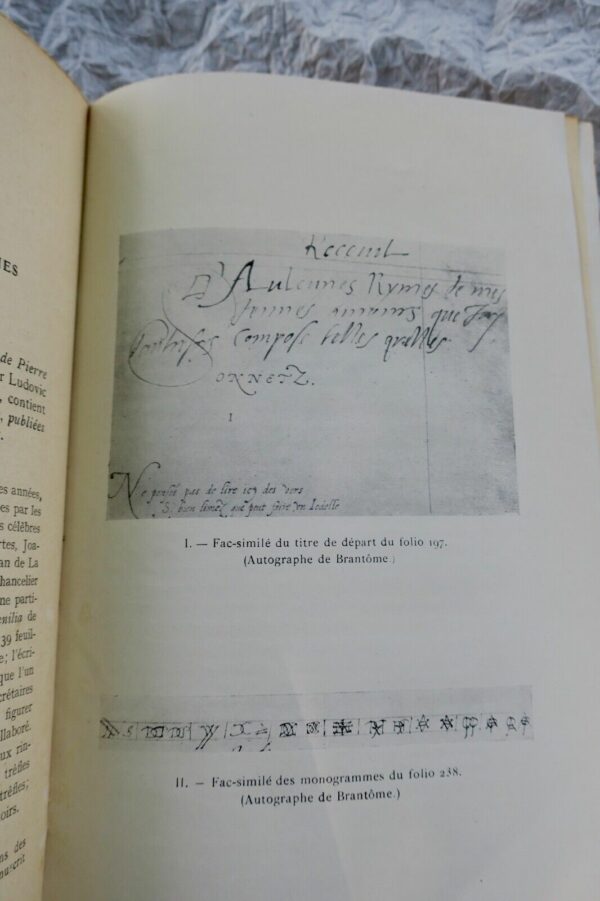 NES
de Pierre
r Ludovic
, contient
, publiées
.
es années,
es par les
s célèbres
rtes, Joa-
an de La
hancelier
ne parti-
enilia de
39 feuil-
e ; l'écri-
que l'un
crétaires
figurer
llaboré.
ux rin-
trèfles
trèfles ;
oirs.
ns des
nuscrit
Receuil
D'Aulcunes Rymes de mes
jeunes amours que
compose telles quelles
SONNETZ.
I
Ne pensés pas de lire icy des vers
Si bien limez que peut faire un Jodelle
I. — Fac-similé du titre de départ du folio 197.
(Autographe de Brantôme.)
II. — Fac-similé des monogrammes du folio 238.
(Autographe de Brantôme.)